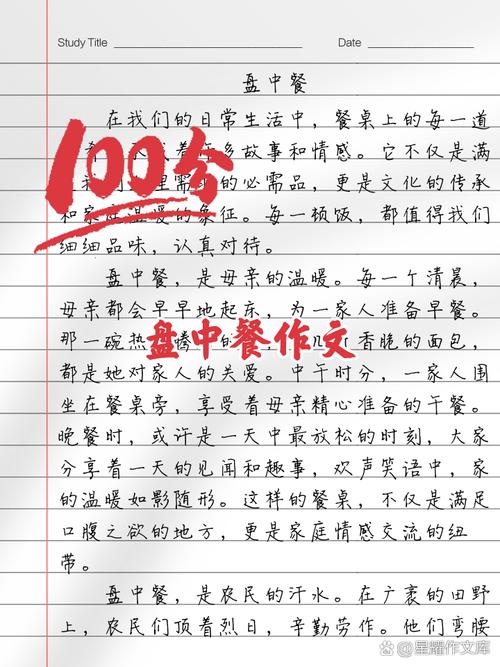 Study Title
Date
盘中餐
在我们的日常生活中，餐桌上的每一道
100分
多故事和情感。它不仅是满
的必需品，更是文化的传承
和家庭温暖的象征。每一顿饭，都值得我们
细细品味，认真对待。
盘中餐，是母亲的温暖。每一个清晨，
母亲都会早早地起床，为一家人准备早餐。
那一碗热
香脆的面包，
盘中餐作文
都是她对家人的关爱。中午时分，一家人围
坐在餐桌旁，享受着母亲精心准备的午餐。
晚餐时，或许是一天中最放松的时刻，大家
分享着一天的见闻和趣事，欢声笑语中，家
的温暖如影随形。这样的餐桌，不仅是满足
口腹之欲的地方，更是家庭情感交流的纽
带。
盘中餐，是农民的汗水。在广袤的田野
上，农民们顶着烈日，辛勤劳作。他们弯腰
星耀作文库